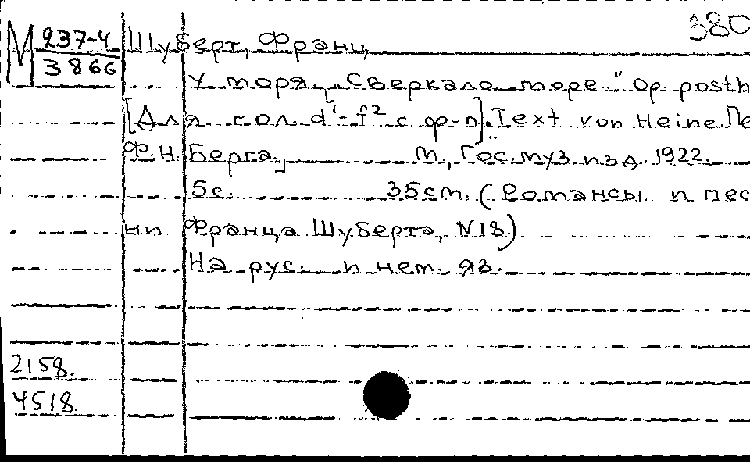 380
М 237-4 Шуберт, Франц
3866
У моря „Сверкало море" Op posth
[Для гол d'-f² с ф-п]. Text von Heine. Пе
Ф.Н. Берга, М, Гос. муз. изд. 1922.
5с. 35см. (Романсы и пес
ни Франца Шуберта, N13)
На рус. и нем. яз.
2158.
4518.